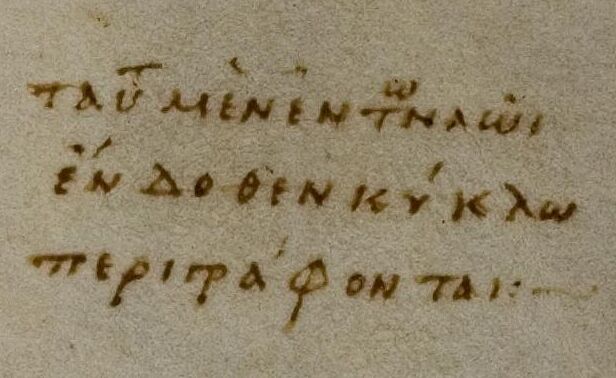 ταῦτ μὲν ἐν τω ναῶι
ἔνδοθεν κύκλω
περιγράφονται:—